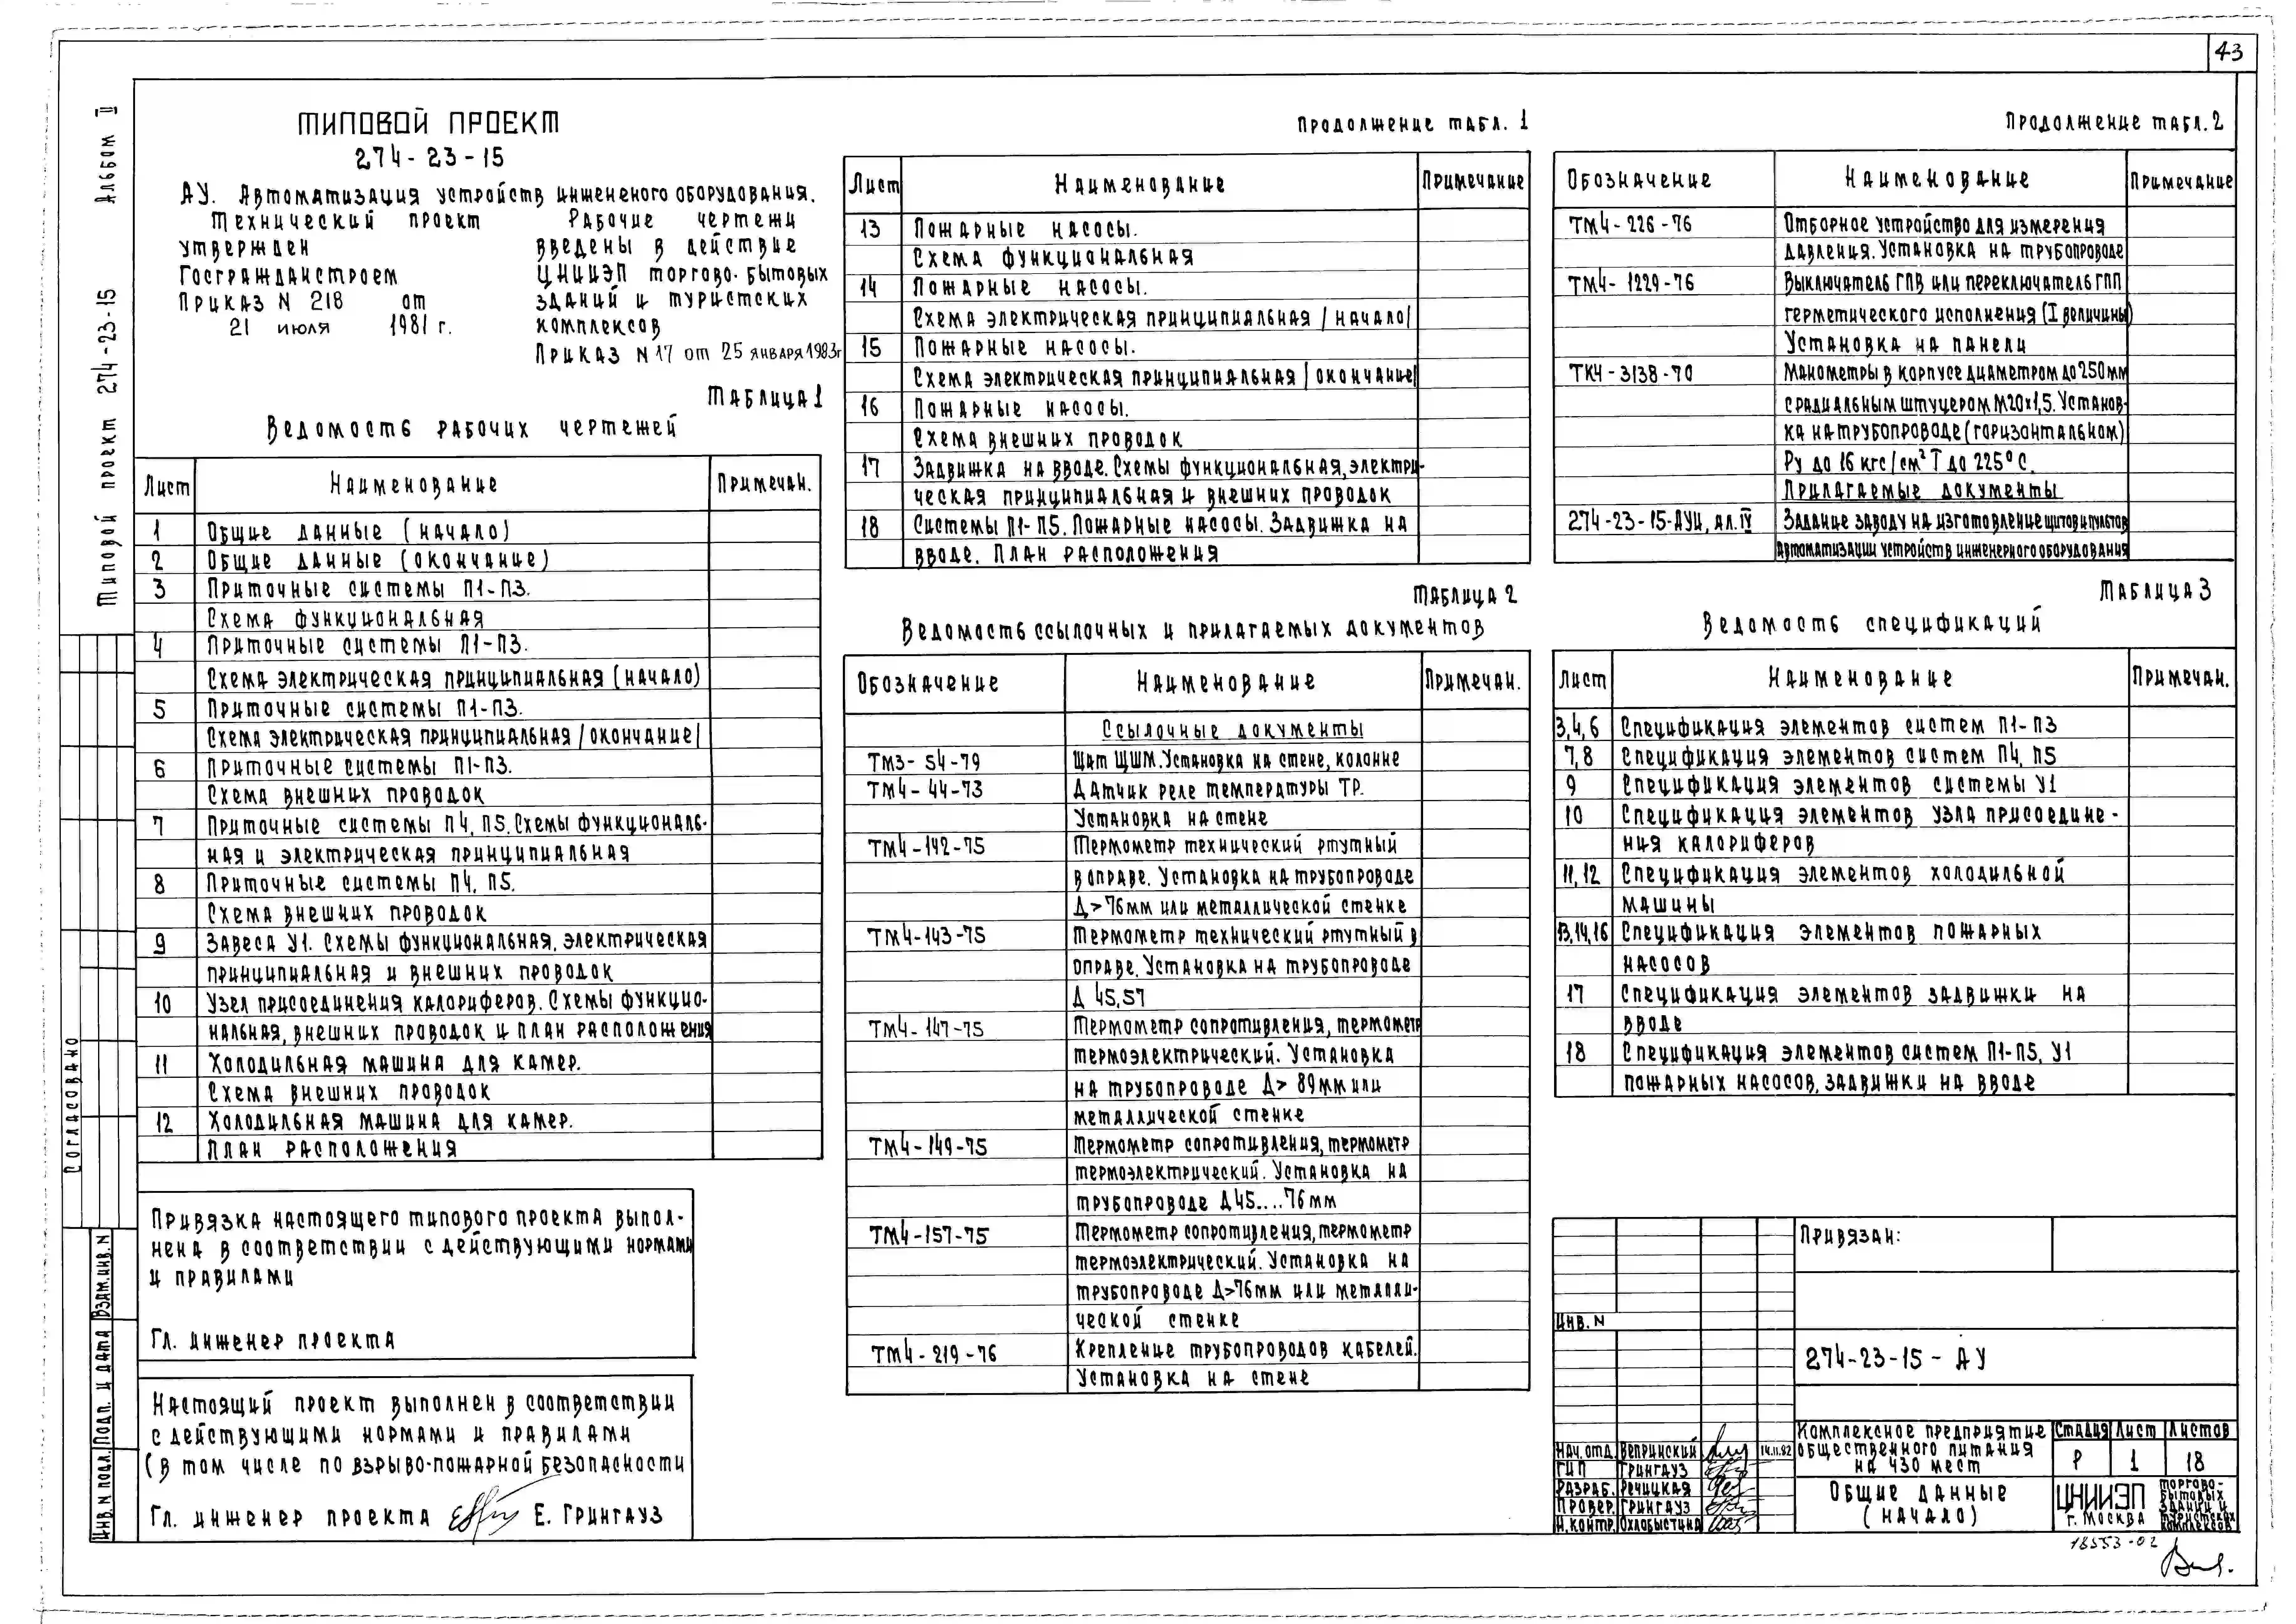 43
Альбом II
Типовой проект 274-23-15
Типовой проект
274-23-15
АУ. Автоматизация устройств инжененого оборудования.
Технический проект
утвержден
Госгражданстроем
Приказ N 218 от
21 июля 1981 г.
Рабочие чертежи
введены в действие
ЦНИИЭП торгово-бытовых
зданий и туристских
комплексов
Приказ N 17 от 25 января 1983г
Таблица 1
Ведомость рабочих чертежей
Лист Наименование Примечан.
1 Общие данные (начало)
2 Общие данные (окончание)
3 Приточные системы П1-П3.
Схема функциональная
4 Приточные системы П1-П3.
Схема электрическая принципиальная (начало)
5 Приточные системы П1-П3.
Схема электрическая принципиальная /окончание/
6 Приточные системы П1-П3.
Схема внешних проводок
7 Приточные системы П4, П5. Схемы функциональ-
ная и электрическая принципиальная
8 Приточные системы П4, П5.
Схема внешних проводок
9 Завеса У1. Схемы функциональная, электрическая
принципиальная и внешних проводок
10 Узел присоединения калориферов. Схемы функцио-
нальная, внешних проводок и план расположения
11 Холодильная машина для камер.
Схема внешних проводок
12 Холодильная машина для камер.
План расположения
Привязка настоящего типового проекта выпол-
нена в соответствии с действующими нормами
и правилами
Гл. инженер проекта
Настоящий проект выполнен в соответствии
с действующими нормами и правилами
(в том числе по взрыво-пожарной безопасности
Гл. инженер проекта Е. Грингауз
Согласовано
Взам. инв. N
Подп. и дата
Инв. N подл.
Продолжение табл. 1
Лист Наименование Примечание
13 Пожарные насосы.
Схема функциональная
14 Пожарные насосы.
Схема электрическая принципиальная /начало/
15 Пожарные насосы.
Схема электрическая принципиальная /окончание/
16 Пожарные насосы.
Схема внешних проводок
17 Задвижка на вводе. Схемы функциональная, электри-
ческая принципиальная и внешних проводок
18 Системы П1-П5. Пожарные насосы. Задвижка на
вводе. План расположения
Таблица 2
Ведомость ссылочных и прилагаемых документов
Обозначение Наименование Примечан.
Ссылочные документы
ТМ3-54-79 Щит ЩШМ. Установка на стене, колонне
ТМ4-44-73 Датчик реле температуры ТР.
Установка на стене
ТМ4-142-75 Термометр технический ртутный
в оправе. Установка на трубопроводе
Д>76мм или металлической стенке
ТМ4-143-75 Термометр технический ртутный в
оправе. Установка на трубопроводе
Д 45,57
ТМ4-147-75 Термометр сопротивления, термометр
термоэлектрический. Установка
на трубопроводе Д> 89мм или
металлической стенке
ТМ4-149-75 Термометр сопротивления, термометр
термоэлектрический. Установка на
трубопроводе Д45....76мм
ТМ4-157-75 Термометр сопротивления, термометр
термоэлектрический. Установка на
трубопроводе Д>76мм или металли-
ческой стенке
ТМ4-219-76 Крепление трубопроводов кабелей.
Установка на стене
Продолжение табл. 2
Обозначение Наименование Примечание
ТМ4-226-76 Отборное устройство для измерения
давления. Установка на трубопроводе
ТМ4-1229-76 Выключатель ГПВ или переключатель ГПП
герметического исполнения (I величины)
Установка на панели
ТК4-3138-70 Манометры в корпусе диаметром до 250мм
с радиальным штуцером М20х1,5. Установ-
ка на трубопроводе (горизонтальном)
Ру до 16 кгс/см² Т до 225°С.
Прилагаемые документы
274-23-15-АУИ, ал. IV Задание заводу на изготовление щитов и пультов
автоматизации устройств инженерного оборудования
Таблица 3
Ведомость спецификаций
Лист Наименование Примечан.
3,4,6 Спецификация элементов систем П1-П3
7,8 Спецификация элементов систем П4, П5
9 Спецификация элементов системы У1
10 Спецификация элементов узла присоедине-
ния калориферов
11,12 Спецификация элементов холодильной
машины
13,14,16 Спецификация элементов пожарных
насосов
17 Спецификация элементов задвижки на
вводе
18 Спецификация элементов систем П1-П5, У1
пожарных насосов, задвижки на вводе
Привязан:
Инв. N
274-23-15-АУ
Нач. отд. Вепринский 14.11.82
ГИП Грингауз
Разраб. Речицкая
Провер. Грингауз
Н. контр. Охлобыстина
Комплексное предприятие
общественного питания
на 430 мест
Стадия Лист Листов
Р 1 18
Общие данные
(начало)
ЦНИИЭП
г. Москва
торгово-
бытовых
зданий и
туристских
комплексов
18553-02